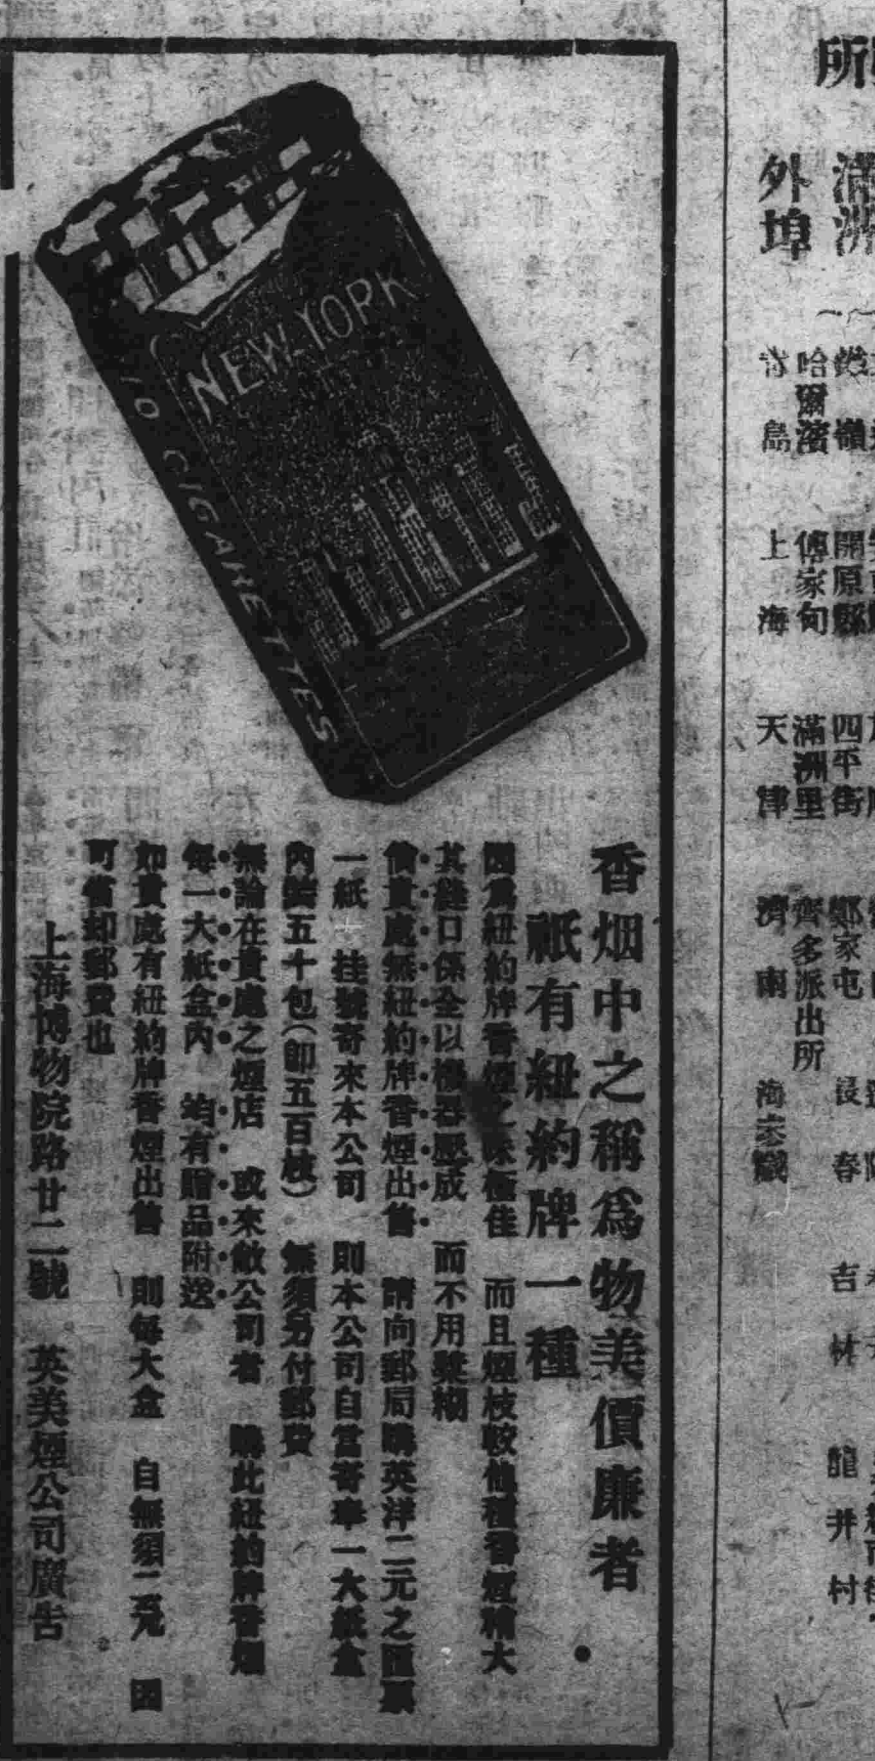 NEW YORK
10 CIGARETTES
香烟中之稱爲物美價廉者
祇有紐約牌一種
因爲紐約牌香煙之味極佳　而且煙枝較他種香煙稍大
其縫口係全以機器壓成　而不用漿糊
倘貴處無紐約牌香煙出售　請向郵局購英洋二元之匯票
一紙　挂號寄來本公司　則本公司自當寄奉一大紙盒
內裝五十包（卽五百枝）　無須另付郵費
無論在貴處之煙店　或來敝公司者　購此紐約牌香烟
每一大紙盒內　均有贈品附送
如貴處有紐約牌香煙出售　則每大盒　自無須二元　因
可省却郵費也
上海博物院路廿二號　英美煙公司廣告
所
滿洲
鐵嶺　開原縣　四平街　鄭家屯　長春　吉林　龍井村
哈爾濱　傅家甸　滿洲里　齊多派出所
外埠
青島　上海　天津　濟南　海參崴